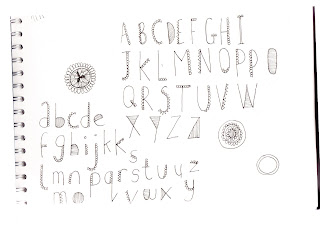 ABCDEFGHI
JKLMNOPPO
QRSTUVW
XYZZ
abcde
fghijkks
lmnpqrstuuz
mo vwxy